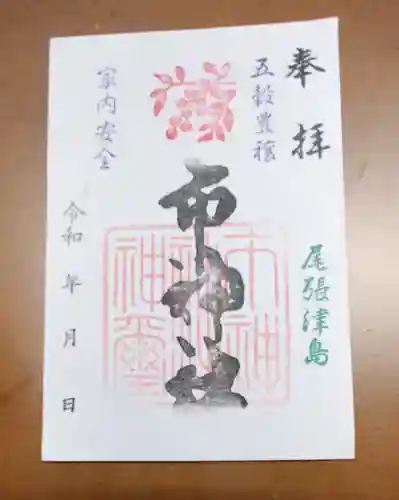 奉拝
五穀豊穣
尾張津島
市神社
家内安全
令和 年 月 日